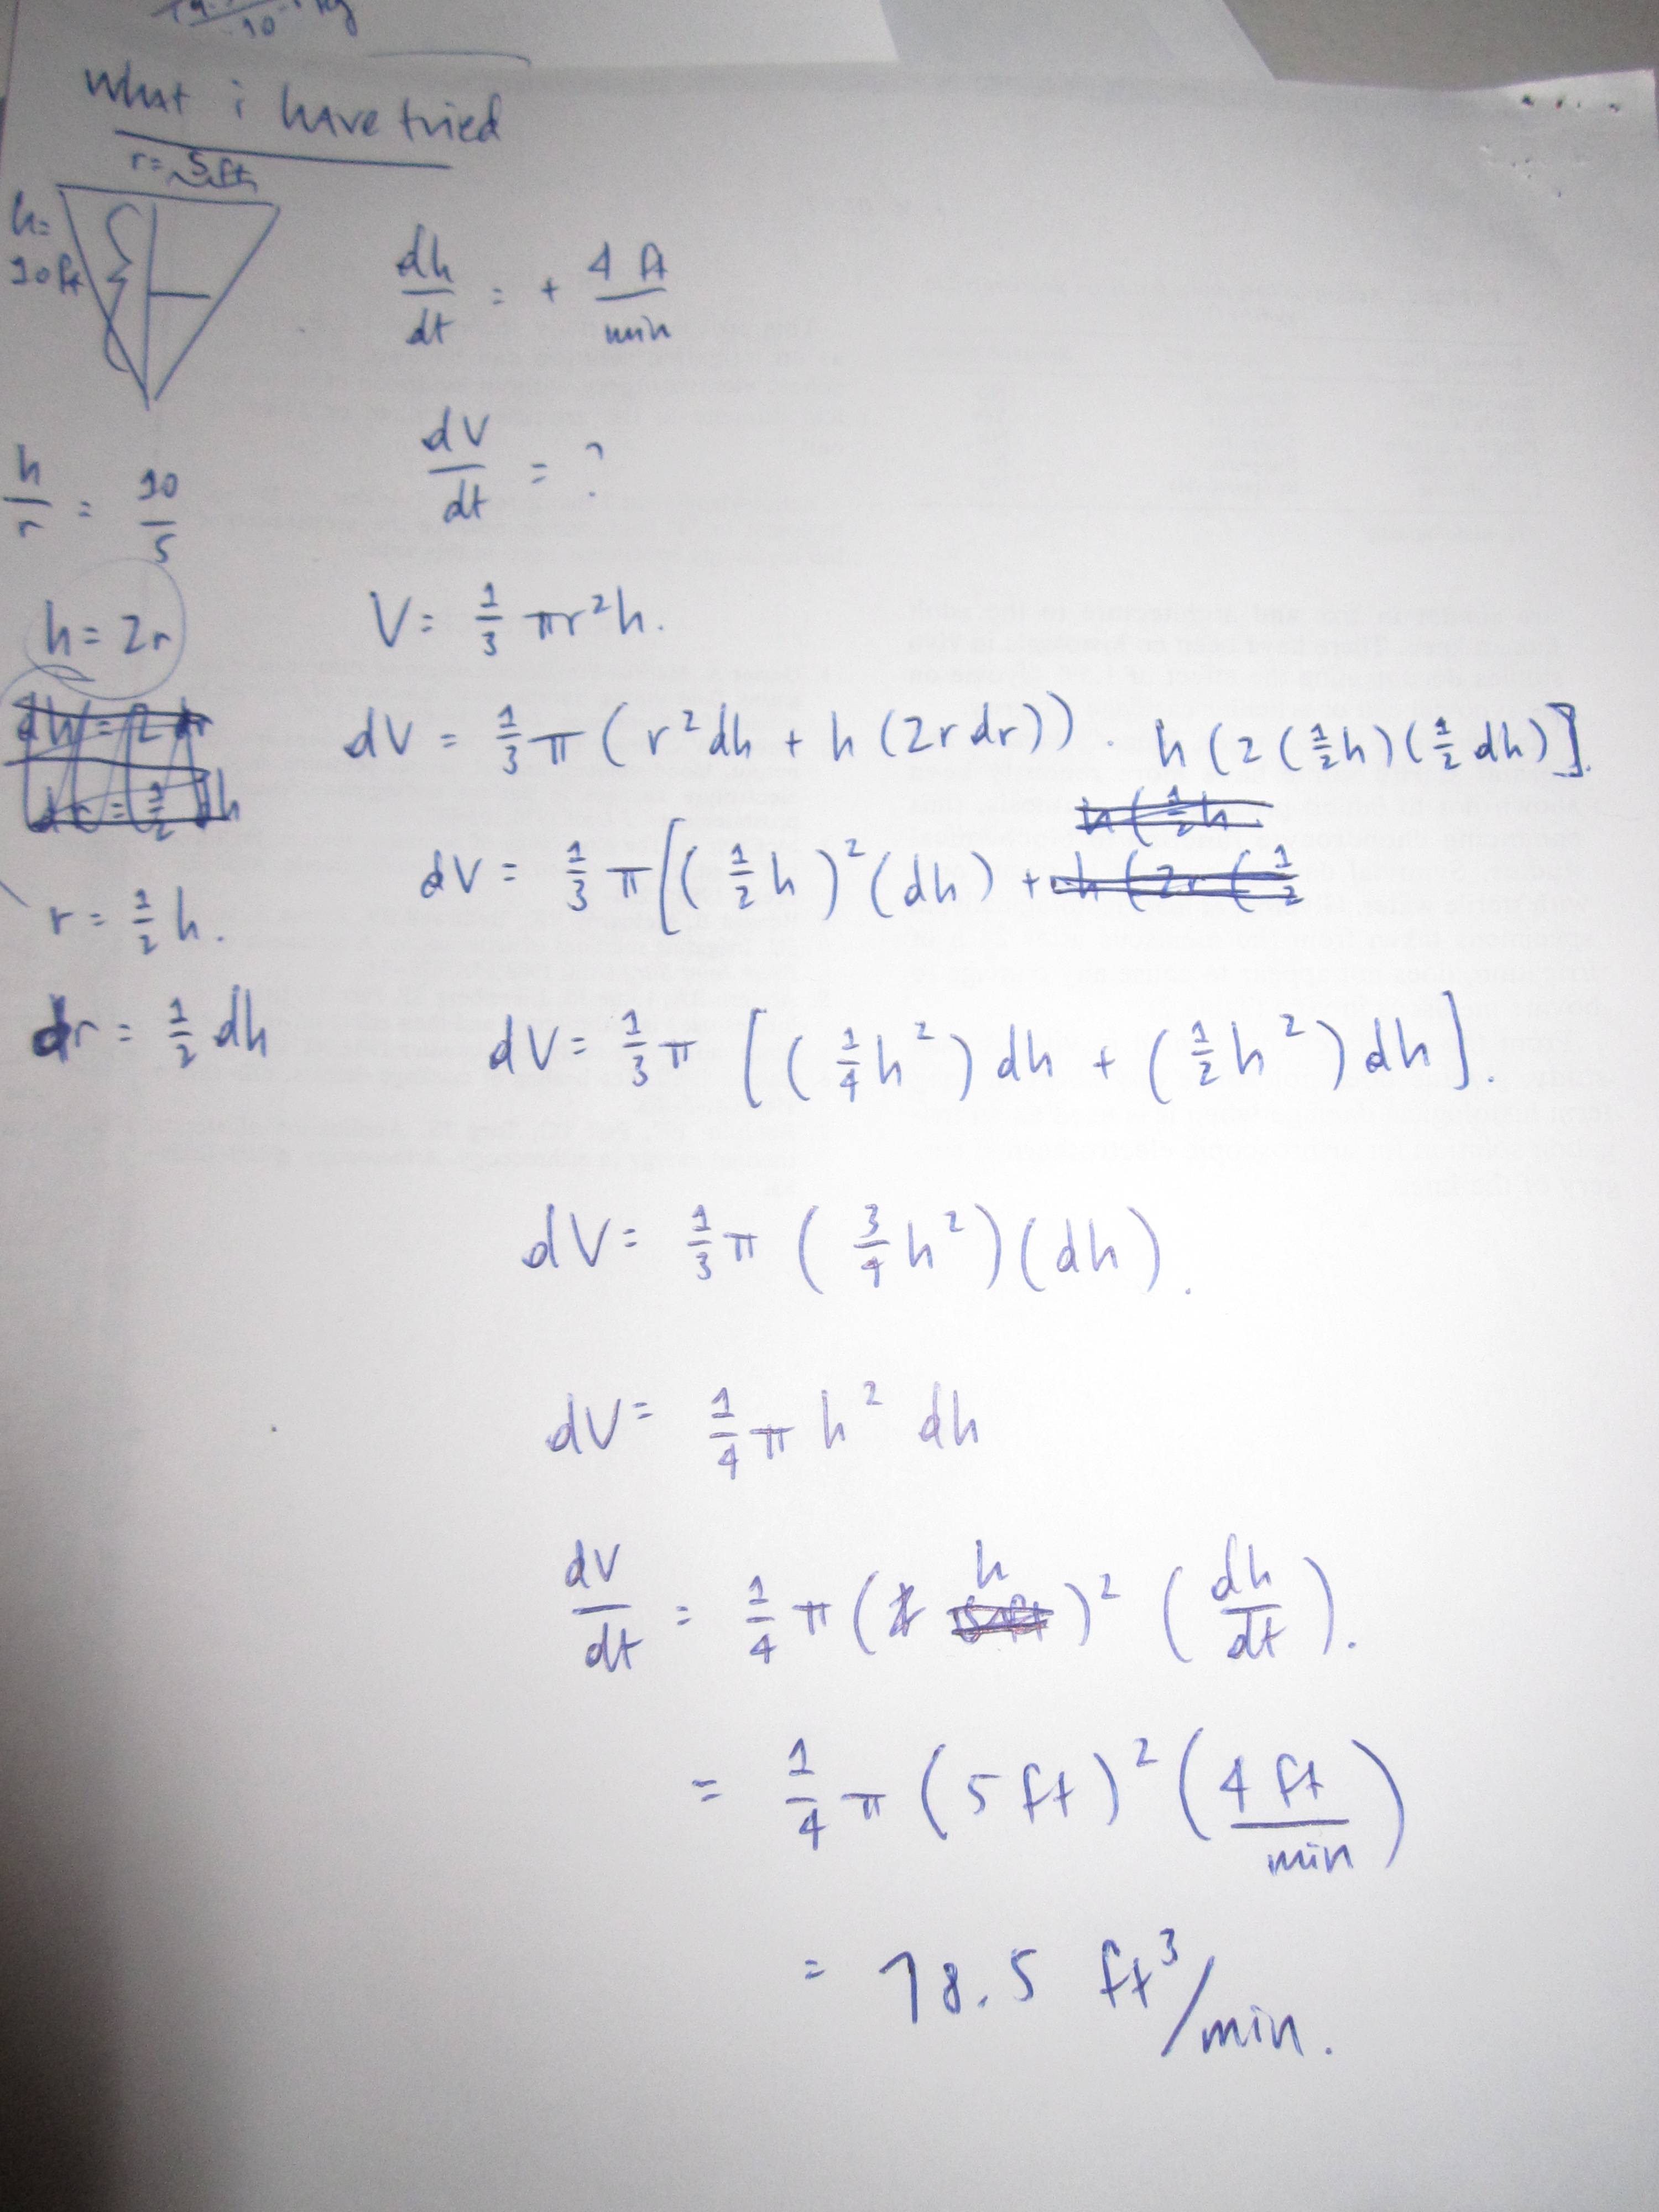 what i have tried
r= 5ft
h=
10ft
dh/dt = + 4 ft/min
dV/dt = ?
h/r = 10/5
h = 2r
V = 1/3 πr²h.
dV = 1/3 π (r²dh + h (2r dr)).
h (2 (1/2 h) (1/2 dh)].
dV = 1/3 π [(1/2 h)² (dh) +
r = 1/2 h.
dr = 1/2 dh
dV = 1/3 π [(1/4 h²) dh + (1/2 h²) dh].
dV = 1/3 π (3/4 h²) (dh).
dV = 1/4 π h² dh
dV/dt = 1/4 π (h)² (dh/dt).
= 1/4 π (5 ft)² (4 ft/min)
= 78.5 ft³/min.